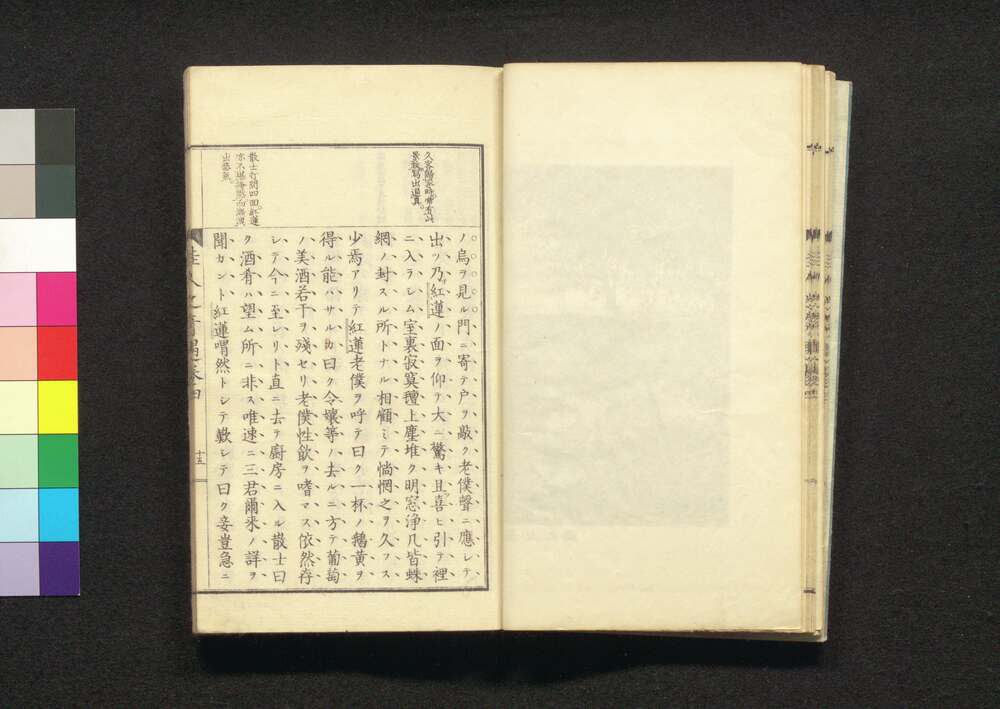 久客歸家時嘗有此
景敍寫出逼真
ノ烏ヲ見ル門ニ寄テ戸ヲ敲ク老僕聲ニ應シテ
出ツ乃紅蓮ノ面ヲ仰テ大ニ驚キ且喜ヒ引テ裡
ニ入ラシム室裏寂寞壇上塵堆ク明窓浄几皆蛛
網ノ封スル所トナル相顧ミテ惝惘之ヲ久フス
少焉アリテ紅蓮老僕ヲ呼テ曰ク一杯ノ鵝黄ヲ
得ル能ハサルカ曰ク令孃等ノ去ルニ方テ葡萄
ノ美酒若干ヲ殘セリ老僕性飲ヲ嗜マス依然存
シテ今ニ至レリト直ニ去テ廚房ニ入ル散士曰
ク酒肴ハ望ム所ニ非ス唯速ニ三君爾來ノ詳ヲ
聞カント紅蓮喟然トシテ歎シテ曰ク妾豈急ニ
散士打開四回紅蓮
佳人之奇遇卷四
十五